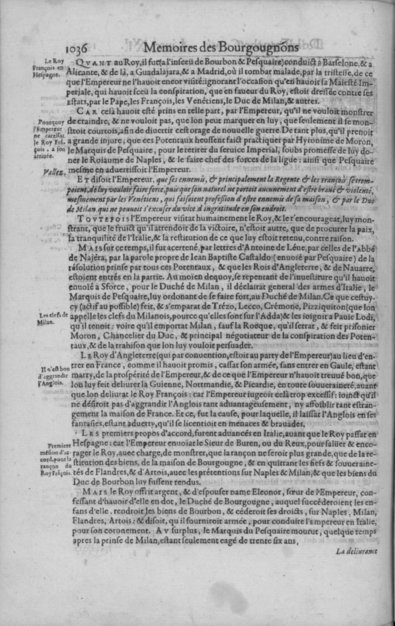 1036
Memoires des Bourgougnons
Le Roy
François en
Hespagne.
QVANT au Roy, il fut (à l'insceu de Bourbon & Pesquaire) conduit à Barselone, & a
Alicante, & de là, a Guadalajara, & a Madrid, où il tombar malade, par la tristesse, de ce
que l'Empereur ne l'hauoit encor visité: ignorant l'occasion qu'en hauoit sa Maiesté Im-
periale, qui hauoit sceu la conspiration, que en faueur du Roy, estoit dressée contre ses
affairs, par le Pape, les François, les Venéticns, le Duc de Milan, & autres.
CAR cela hauoit esté prins en telle part, par l'Empereur, qu'il ne vouloit monstrer
Pourquoy
l'Empereur
ne caressat
le Roy Fran-
çois, a son
arriuée.
de craindre, & ne vouloit pas, que lon peut marquer en luy, que seulement il se mon-
stroit courtois, afin de diuertir cest orage de nouuelle guerre. De tant plus, qu'il prenoit
a grande injure, que ces Potenteaux heussent faict practiquer par Hyronime de Moron,
le Marquis de Pesquaire, pour le retirer du seruice Imperial, soubs promesse de luy do-
ner le Roiaume de Naples, & le faire chef des forces de la ligue: ainsi que Pesquaire
mesme en aduertissoit l'Empereur.
Vallez.
ET disoit l'Empereur, que ses ennemis, & principalement la Regente & les
poient, de luy vouloir faire force, puis que son naturel ne portoit aucunement d'estre braué & violenté,
mesmement par les Venitiens, qui faisoient profession d'estre ennemis de sa maison, & par le Duc
de Milan qui ne pouuoit s'excuser du vice d'ingratitude en son endroit.
TOVTEFOIS l'Empereur visitat humainement le Roy, & le r'encourageat, luy mon-
strant, que le fruict qu'il attendoit de la victoire, n'estoit autre, que de procurer la paix,
la tranquilité de l'Italie, & la restitution de ce que luy estoit retenu, contre raison.
MAIS sur ce temps, il fut acertené, par lettres d'Antoine de Léue, par celles de l'abbé
de Najéra, par la parole propre de Iean Baptiste Castaldo (enuoié par Pesquaire) de la
résolution prinse par tous ces Potenteaux, & que les Rois d'Angleterre, & de Nauarre,
estoient entrés en la partie. Au moien dequoy, se repentant de l'inuestiture qu'il hauoit
enuoié a Sforce, pour le Duché de Milan, il déclairat general des armes d'Italie, le
Marquis de Pesquaire, luy ordonant de se faire fort, au Duché de Milan. Ce que cestuy-
cy (actif au possible) feit, & s'emparat de Trézo, Lecco, Crémone, Pizziquiton (que lon
Les clefs de
Milan.
appelle les clefs du Milanois, pource qu'elles sont sur l'Adda) & les joignit a Pauie Lodi,
qu'il tenoit: voire qu'il emportat Milan, sauf la Rocque, qu'il serrat, & feit prisonier
Moron, Chancelier du Duc, & principal négotiateur de la conspiration des Poten-
taux, & de la trahison que lon luy vouloit persuader.
LE Roy d'Angleterre (qui par conuention, estoit au party de l'Empereur) au lieu d'en-
trer en France, comme il hauoit promis, cassat son armée, sans entrer en Gaule, estant
Il n'est bon
d'aggrandir
l'Anglois.
marry, de la prospérité de l'Empereur, & de ce que l'Empereur n'hauoit treuué bon, que
lon luy feit deliurer la Guienne, Normandie, & Picardie, en toute souuerainété, auant
que lon deliurat le Roy François: car l'Empereur iugeoit cela trop excessif: ioinct qu'il
ne désiroit pas d'aggrandir l'Anglois tant aduantageusement, ny affoiblir tant estran-
gement la maison de France. Et ce, fut la cause, pour laquelle, il laissat l'Anglois en ses
fantasies, estant aduerty, qu'il se licentioit en menaces & brauades.
LES premiers propos d'accord, furent aduancés en Italie, auant que le Roy passat en
Premiers
moiens d'ac-
cord, pour la
rançon du
Roy François
Hespagne: car l'Empereur enuoiat le Sieur de Buren, ou du Reux, pour saluer & encou-
rager le Roy, auec charge, de monstrer, que la rançon ne seroit plus grande, que de la re-
stitution des biens, de la maison de Bourgougne, & en quittant les fiefs & souueraine-
tés de Flandres, & d'Artois, auec les prétensions sur Naples & Milan, & que les biens du
Duc de Bourbon luy fussent rendus.
MAIS le Roy offrit argent, & d'espouser name Eleonor, sœur de l'Empereur, con-
fessant d'hauoir d'elle en dot, le Duché de Bourgougne, auquel succéderoient les en-
fans d'elle, rendroit les biens de Bourbon, & céderoit ses droicts, sur Naples, Milan,
Flandres, Artois: & disoit, qu'il fourniroit armée, pour conduire l'Empereur en Italie,
pour son coronement. AV surplus, le Marquis du Pesquaire mourut, quelque temps
apres la prinse de Milan, estant seulement eagé de trente six ans,
La deliurance